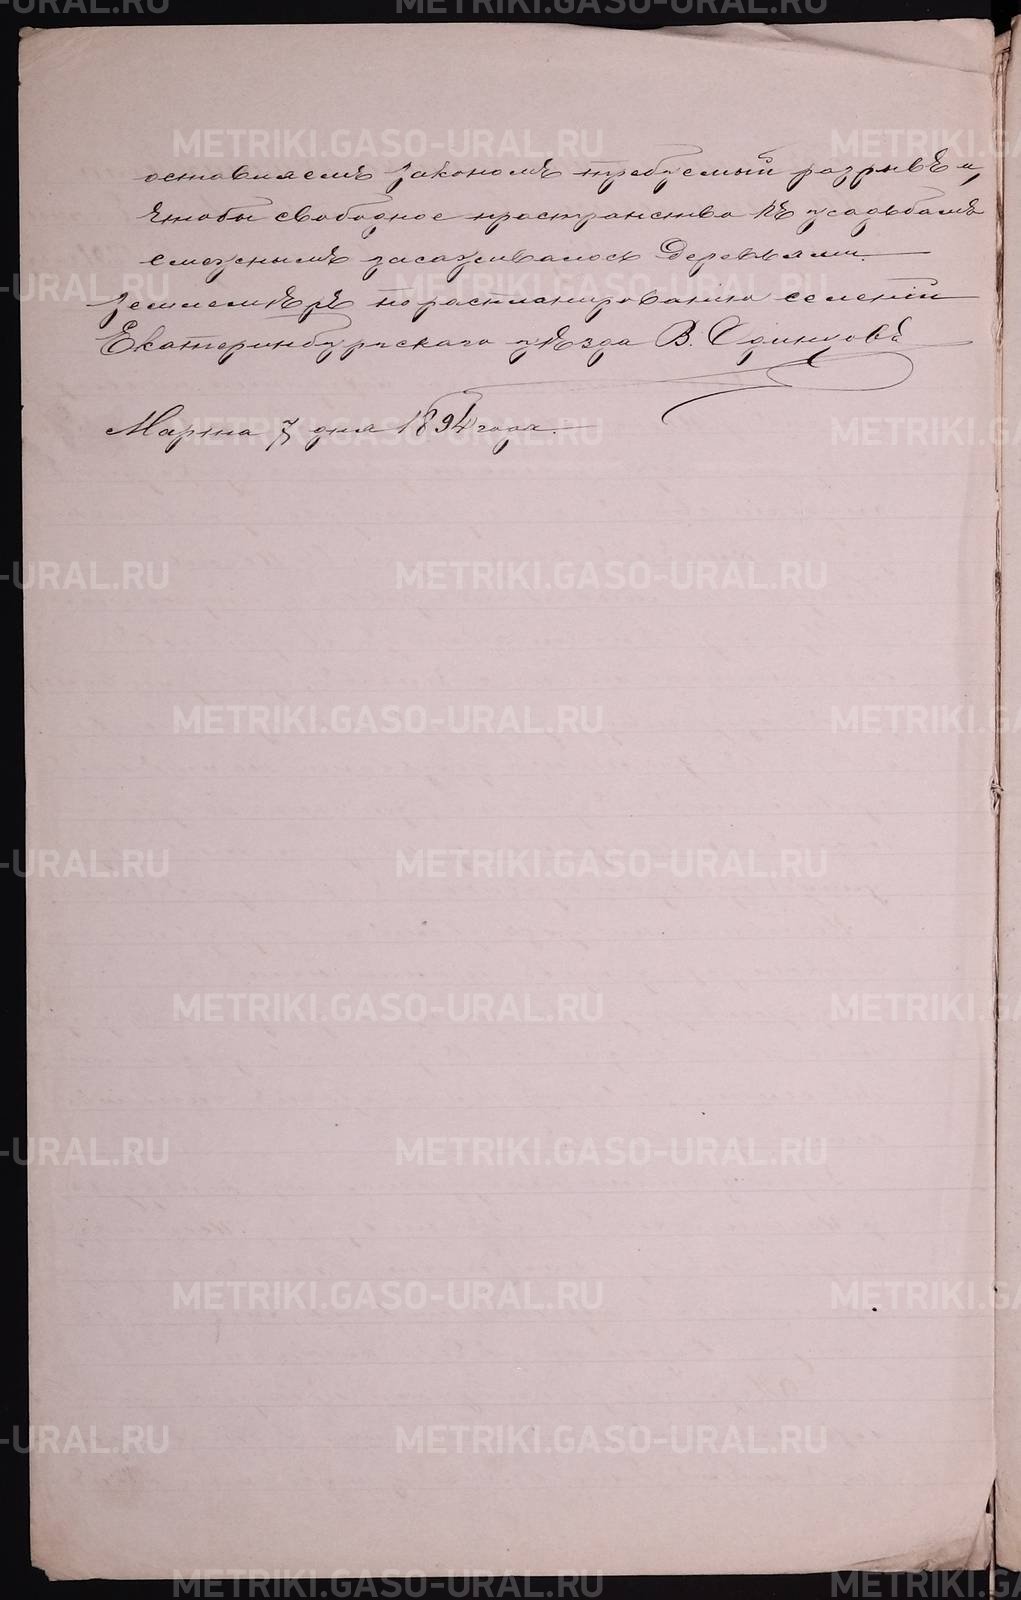 оставляемъ закономъ требуемый разрывъ и,
чтобы свободное пространство къ усадьбамъ
смежнымъ засаживалось деревьями.
Землемѣръ по распланированію селеній
Екатеринбургскаго уѣзда В. Одинцовъ
Марта 7 дня 1894 года.
METRIKI.GASO-URAL.RU